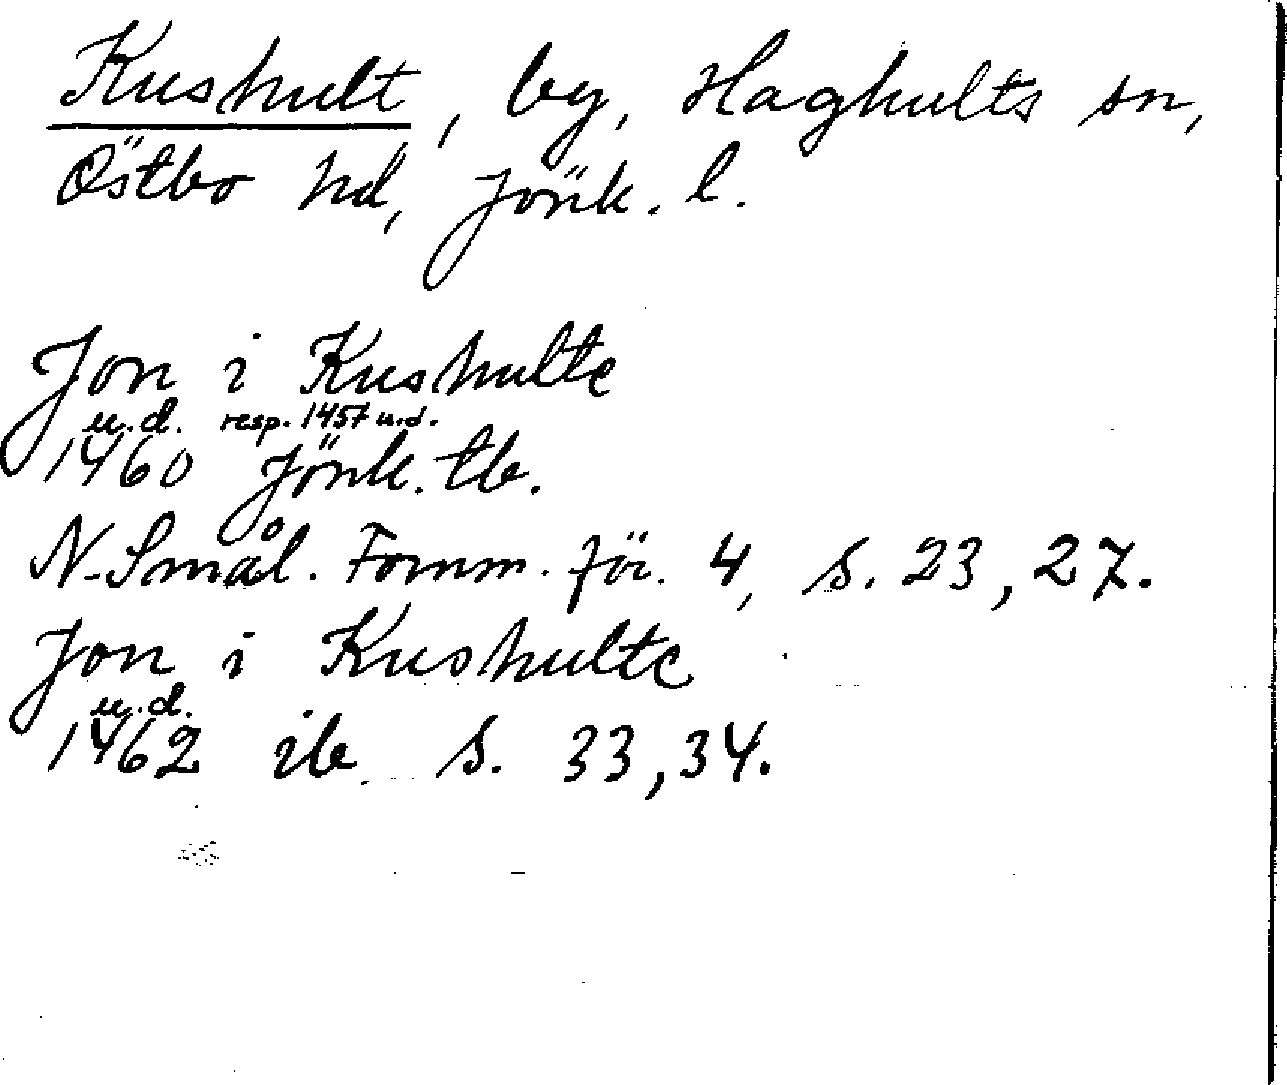 Kushult, by, Haghults sn,
Östbo hd, Jönk. l.
Jon i Kushulte
u.d. resp. 1457 u.d.
1460 Jönk. tb.
N. Smål. Fornm. för. 4, s. 23, 27.
Jon i Kushulte
u.d.
1462 ib. s. 33, 34.